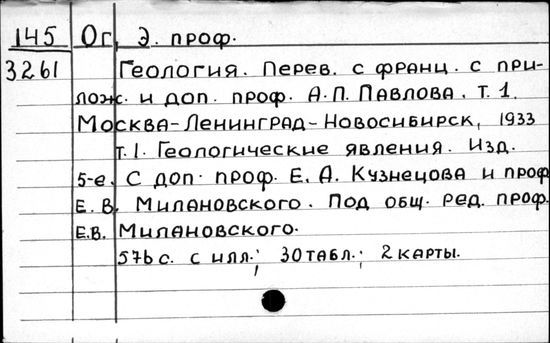 145 Ог, Э. проф.
3261 Геология. Перев. с франц. с при-
лож. и доп. проф. А.П. Павлова. Т. 1.
Москва-Ленинград-Новосибирск, 1933
т.1. Геологические явления. Изд.
5-е. С доп. проф. Е. А. Кузнецова и проф.
Е. В. Милановского. Под общ. ред. проф.
Е.В. Милановского.
576 с. с илл.; 30 табл.; 2 карты.